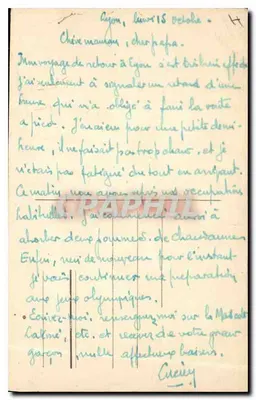 Lyon, lundi 15 octobre.
Chère maman, cher papa.
Mon voyage de retour à Lyon s'est très bien effectué
j'ai seulement à signaler un retard d'une
heure qui m'a obligé à faire la route
à pied. J'en ai eu pour une petite demi-
heure, il ne faisait pas trop chaud, et je
n'étais pas fatigué du tout en arrivant.
Ce matin nous avons repris nos occupations
habituelles. J'ai commencé aussi à
absorber deux
Enfin, rien de nouveau pour l'instant
je vais continuer ma préparation
aux jeux olympiques.
Ecrivez-moi, renseignez moi sur la
etc. et recevez de votre grand
garçon, mille affectueux baisers.
CPArama